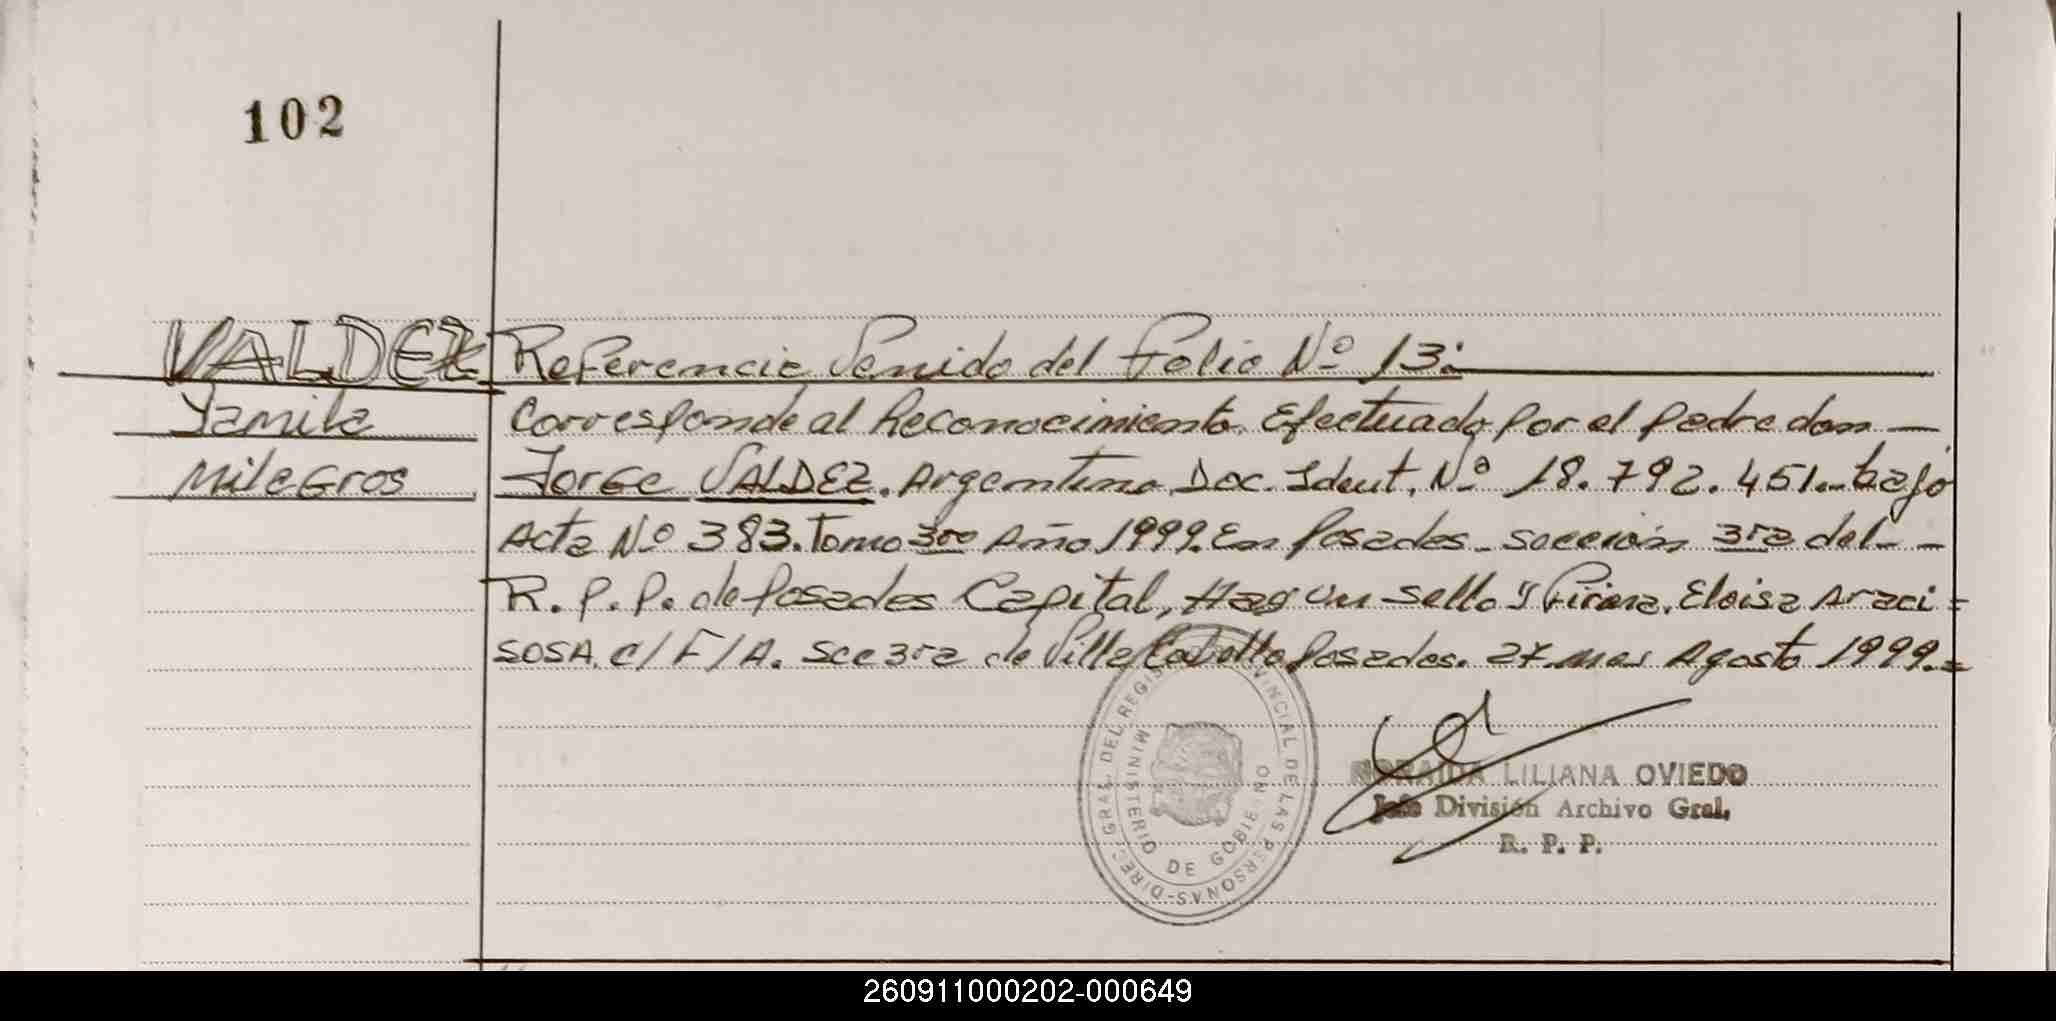 102
VALDEZ Referencia Venida del Folio Nº 13:
Yamila Corresponde al Reconocimiento Efectuado por el padre don —
Milagros Jorge VALDEZ. Argentino Doc. Ident. Nº 18.792.451.- bajo
Acta Nº 383. Tomo 3ro Año 1999. En Posadas - sección 3ra del - -
R. P. P. de Posadas Capital, Hay un sello y Firma. Eloisa Araci =
SOSA. C/F/A. Scc 3ra de Villa Cabello Posadas. 27 mes Agosto 1999.=
DIREC. GRAL. DEL REGIS VINCIAL DE LAS PERSONAS-
MINISTERIO DE GOBIERNO
LILIANA OVIEDO
Jefe División Archivo Gral.
R. P. P.
260911000202-000649